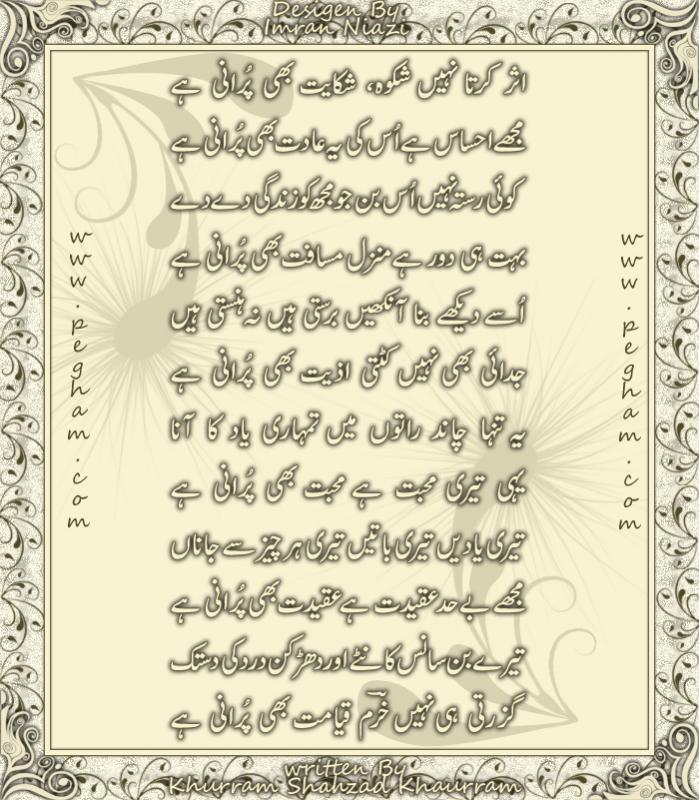 Desigen By
Imran Niazi
اثر کرتا نہیں شکوہ، شکایت بھی پُرانی ہے
مجھے احساس ہے اُس کی یہ عادت بھی پُرانی ہے
کوئی رستہ نہیں اُس بن جو مجھ کو زندگی دے دے
بہت ہی دور ہے منزل مسافت بھی پُرانی ہے
اُسے دیکھے بنا آنکھیں برستی ہیں نہ ہنستی ہیں
جدائی بھی نہیں کٹتی اذیت بھی پُرانی ہے
یہ تنہا چاند راتوں میں تمہاری یاد کا آنا
یہی تیری محبت ہے محبت بھی پُرانی ہے
تیری یادیں تیری باتیں تیری ہر چیز سے جاناں
مجھے بے حد عقیدت ہے عقیدت بھی پُرانی ہے
تیرے بن سانس کاٹنے اور دھڑکن درد کی دستک
گزرتی ہی نہیں خرم قیامت بھی پُرانی ہے
www.pegham.com
www.pegham.com
written By
Khurram Shahzad Khaurram